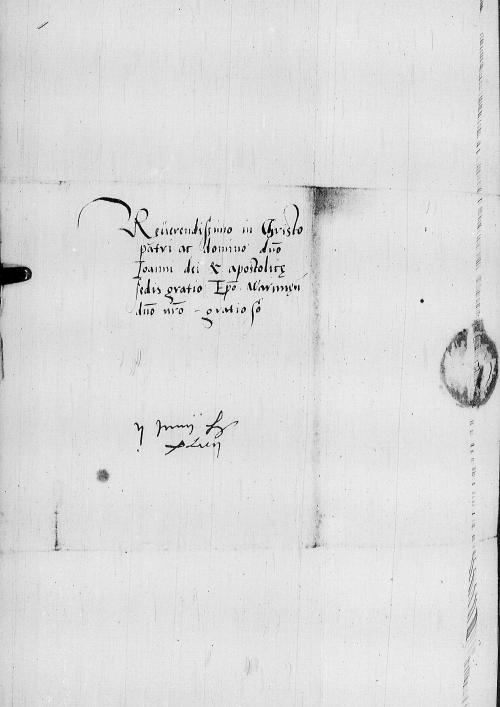 Reverendissimo in Christo
patri ac domino dño
Ioanni dei & apostolicę
sedis gratia Epõ Warmięñ
dño ñro gratioso
ii Junii
xlvii